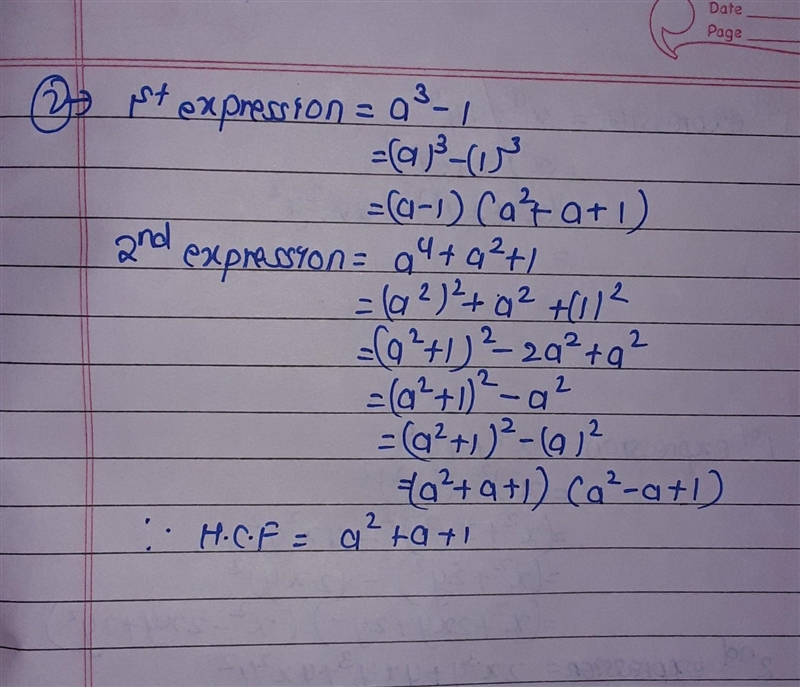 Date
Page
② → 1st expression = a³ - 1
= (a)³ - (1)³
= (a-1) (a² + a + 1)
2nd expression = a⁴ + a² + 1
= (a²)² + a² + (1)²
= (a²+1)² - 2a² + a²
= (a²+1)² - a²
= (a²+1)² - (a)²
= (a² + a + 1) (a² - a + 1)
∵ H.C.F = a² + a + 1